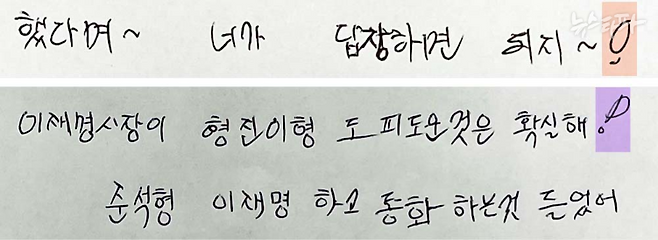 했다며~ 너가 답장하면 되지~!
뉴스타파
이재명시장이 형진이형 도피도운것은 확실해!
준석형 이재명 하고 통화 하는것 들었어